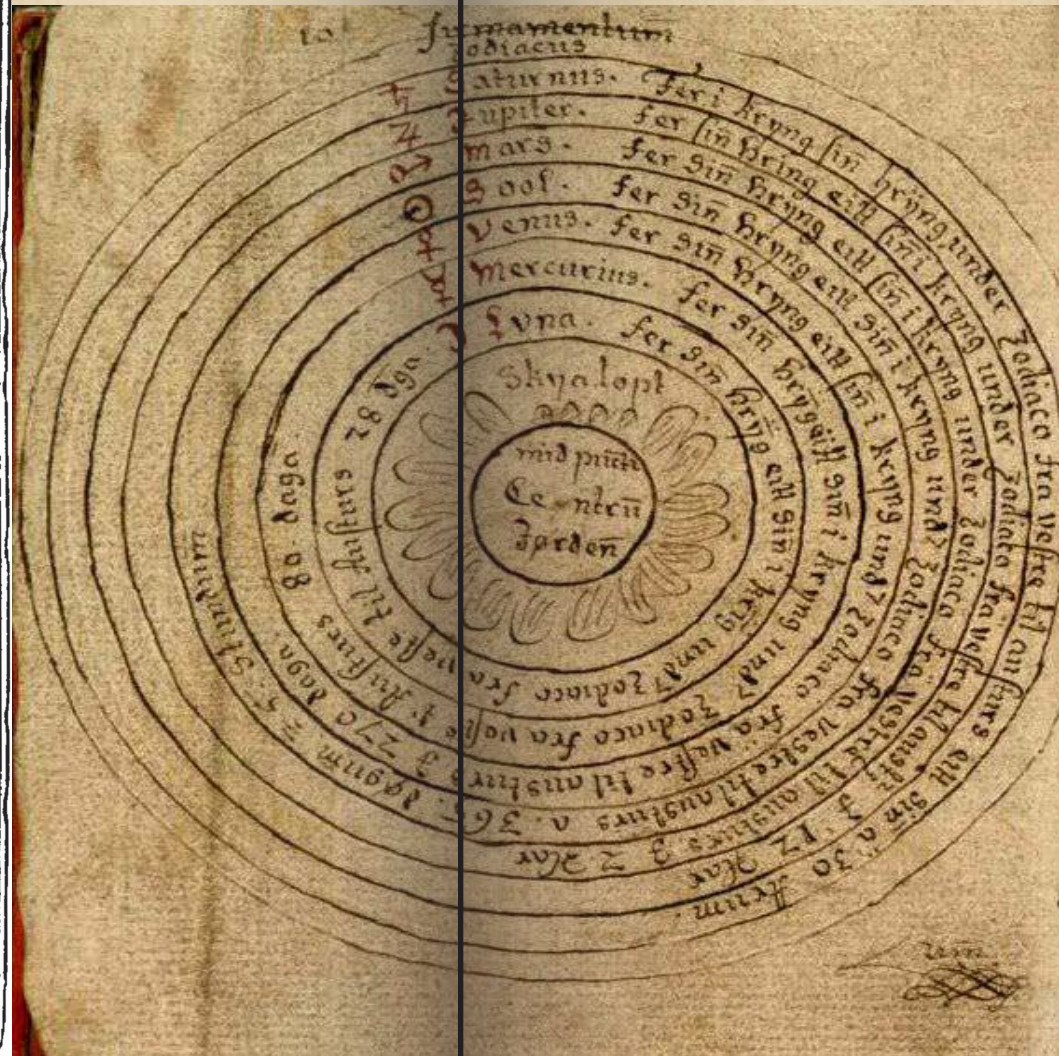 firmamentum
zodiacus
♄ Saturnus. Fer i kryng sin̄ hrÿng under Zodiaco fra vestre til austurs eitt sin̄ a 30 Arum.
♃ Jupiter. fer sin̄ Hring eitt sin̄ i kryng under Zodiaco fra vestre til aust, 3 12 Aar
♂ mars. fer sin̄ hrÿng eitt sin̄ i kryng under Zodiaco fra vestre til austurs 3 2 Aar
☉ Sool. fer sin̄ hryng eitt sin̄ i kryng und Zodiaco fra vestre til austurs a. 365. dagum Z 5. Stundum
♀ venus. fer sin̄ hryng eitt sin̄ i kryng und Zodiaco fra vestre til austurs 3 270 daga.
☿ Mercurius. fer sin̄ hrÿg eitt sin̄ i kryng und Zodiaco fra vestre Austurs 80. daga.
☾ Lvna. fer sin̄ hrÿg eitt sin̄ i krÿg und Zodiaco fra veste til Austurs 28 dga.
Skyalopt
mid pūct
Centrū
Jørden̄
um.